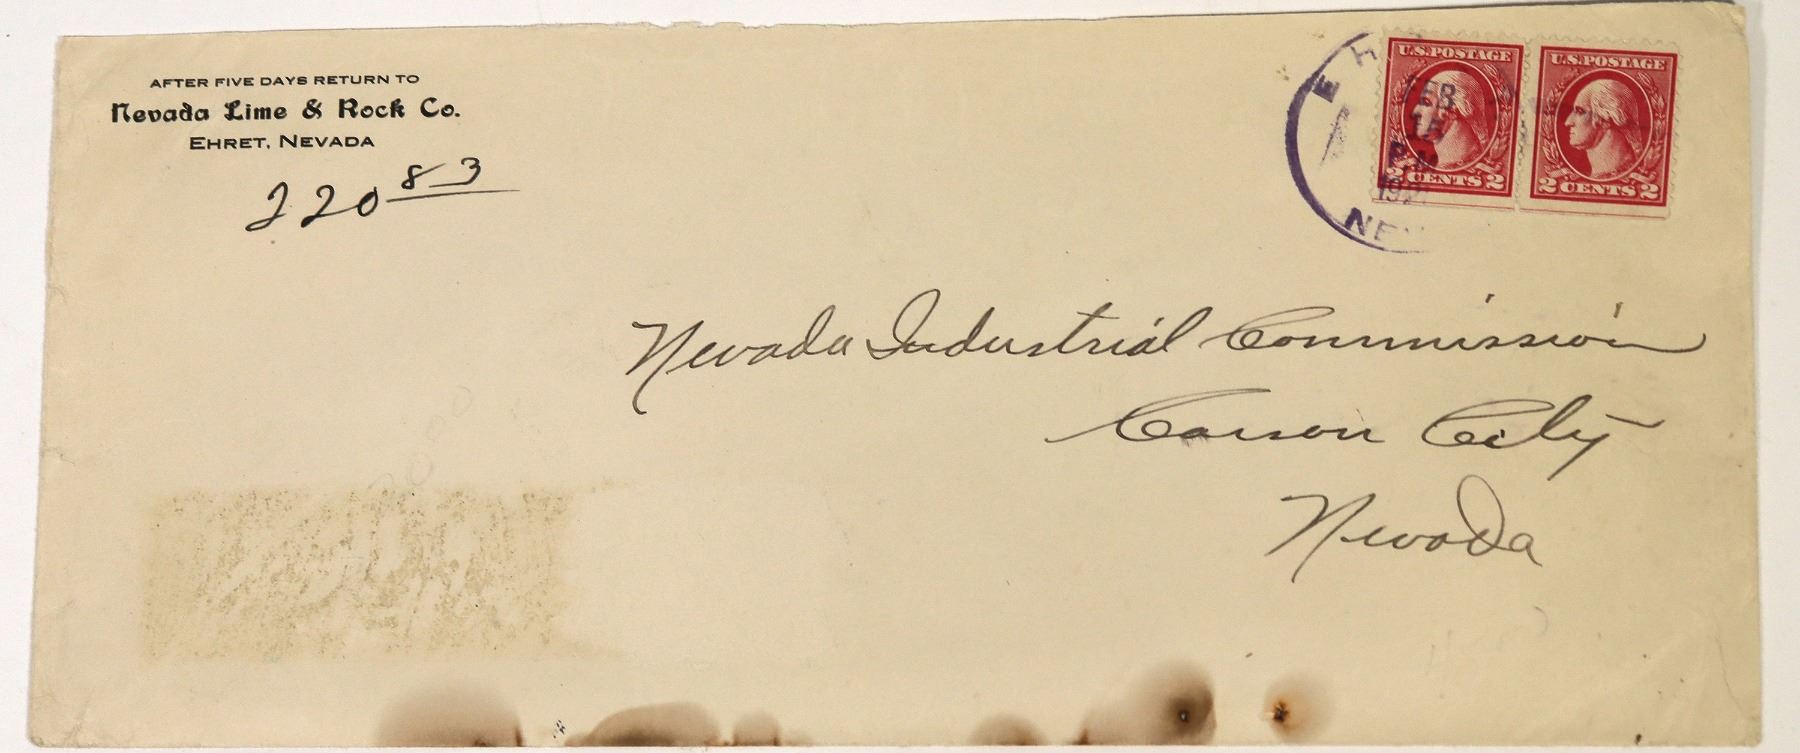 AFTER FIVE DAYS RETURN TO
Nevada Lime & Rock Co.
EHRET, NEVADA
220 83
U.S. POSTAGE
2 CENTS 2
U.S. POSTAGE
2 CENTS 2
FEB
15
P.M.
NEV
Nevada Industrial Commission
Carson City
Nevada